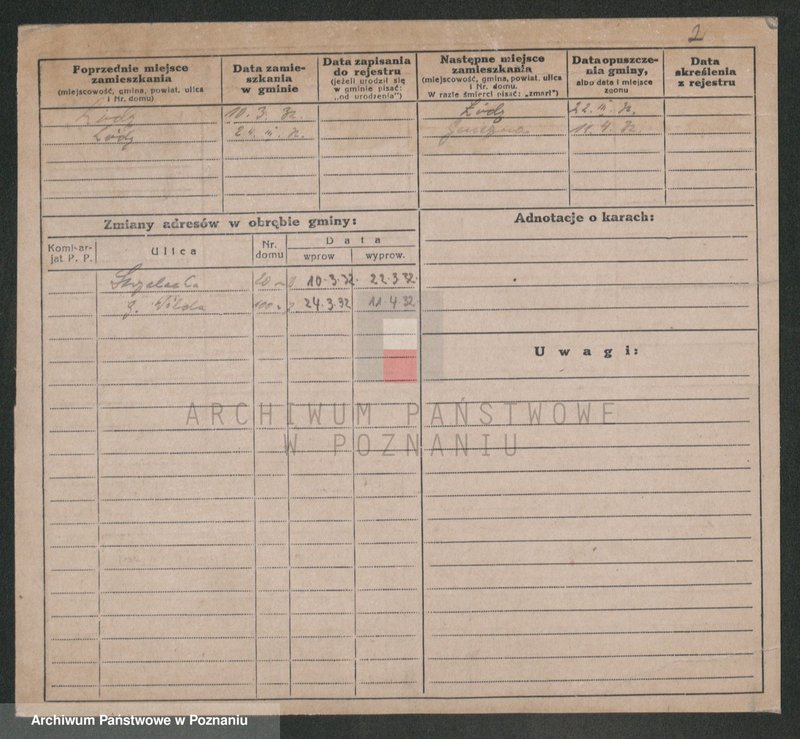 2
Poprzednie miejsce zamieszkania
(miejscowość, gmina, powiat, ulica i Nr. domu)
Data zamie-szkania w gminie
Data zapisania do rejestru
(jeżeli urodził się w gminie pisać: „od urodzenia")
Następne miejsce zamieszkania
(miejscowość, gmina, powiat, ulica i Nr. domu. W razie śmierci pisać: „zmarł")
Data opuszcze-nia gminy,
albo data i miejsce zgonu
Data skreślenia z rejestru
Łódź 10. 3. 32. Łódź 22. III. 32.
Łódź 24. III. 32. 11. 4. 32
Zmiany adresów w obrębie gminy:
Adnotacje o karach:
Komisar-jat P. P.
Ulica
Nr. domu
Data
wprow
wyprow.
10.3.32. 22.3.32.
g. Wilda 24.3.32 11.4.32.
Uwagi:
ARCHIWUM PAŃSTWOWE
W POZNANIU
Archiwum Państwowe w Poznaniu